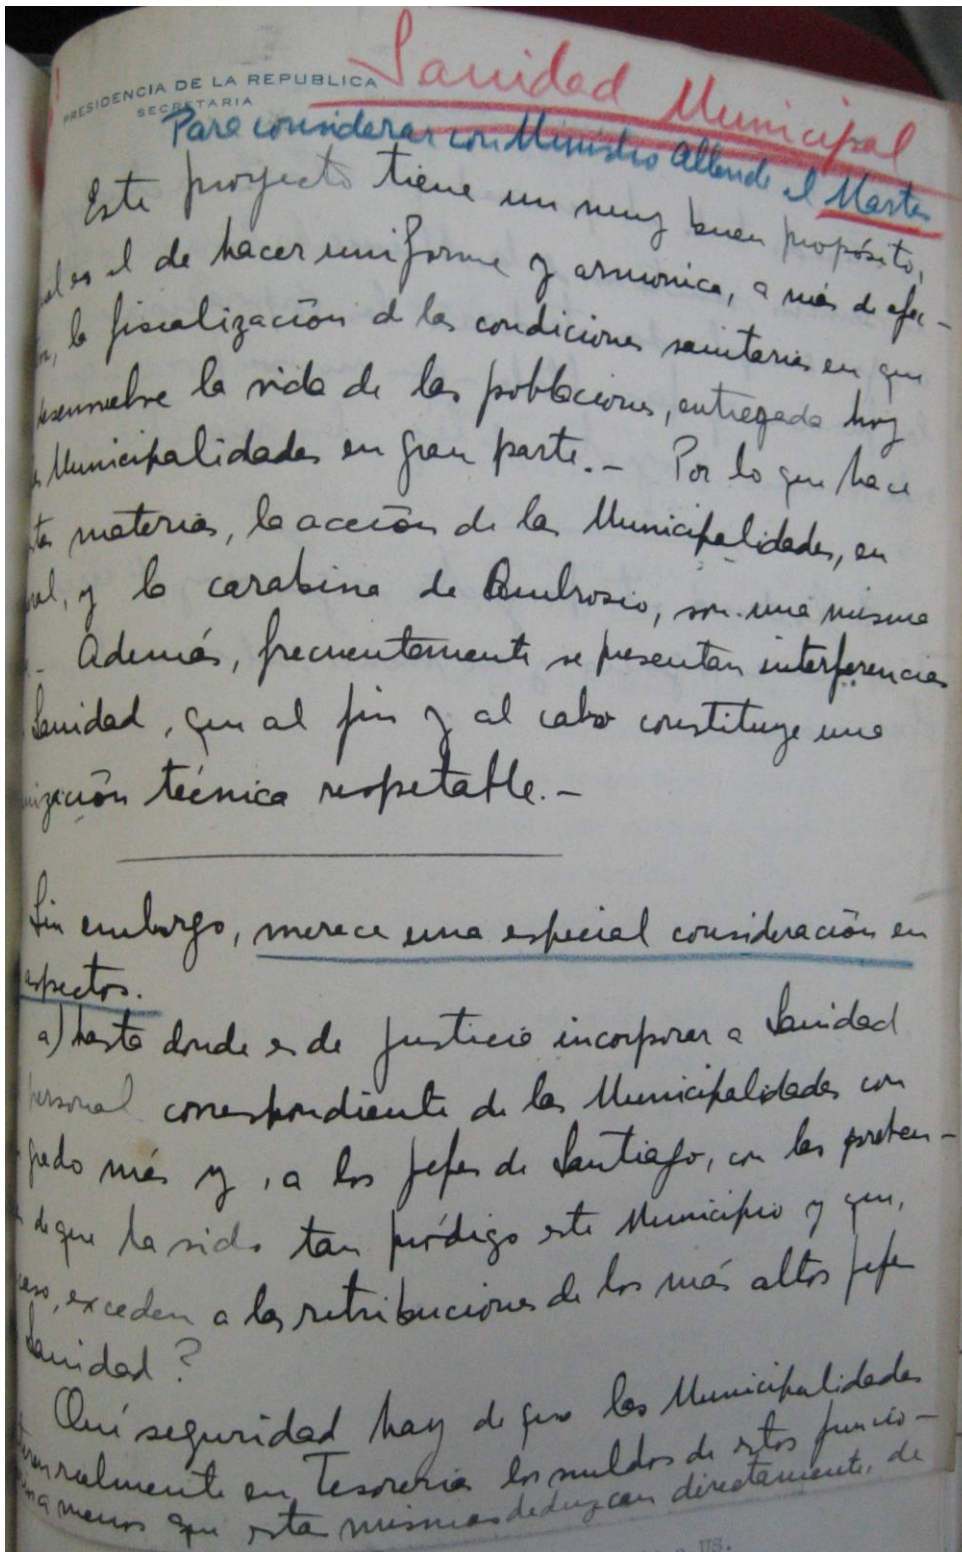 Sanidad Municipal
PRESIDENCIA DE LA REPUBLICA
SECRETARIA
Para considerar con Ministro Allende el Martes
Este proyecto tiene un muy buen propósito,
es el de hacer uniforme y armonica, a más de efec-
la fiscalización d las condiciones sanitarias en que
desenvuelve la vida de las poblaciones, entregada hoy
Municipalidades en gran parte.- Por lo que hace
materias, la acción de las Municipalidades, en
y la carabina de Ambrosio, son una misma
Además, frecuentemente se presentan interferencias
Sanidad, que al fin y al cabo constituye una
nización técnica respetable.-
Sin embargo, merece una especial consideración en
aspectos.
a) hasta donde es de justicia incorporar a Sanidad
personal correspondiente de las Municipalidades con
grado más y, a los Jefes de Santiago, con las preben-
de que ha sido tan pródigo este Municipio y que,
caso, exceden a las retribuciones de los más altos jefes
Sanidad?
Qué seguridad hay de que las Municipalidades
realmente en Tesorería los sueldos de estos funcio-
a menos que estas mismas deduzcan directamente, de
a US.